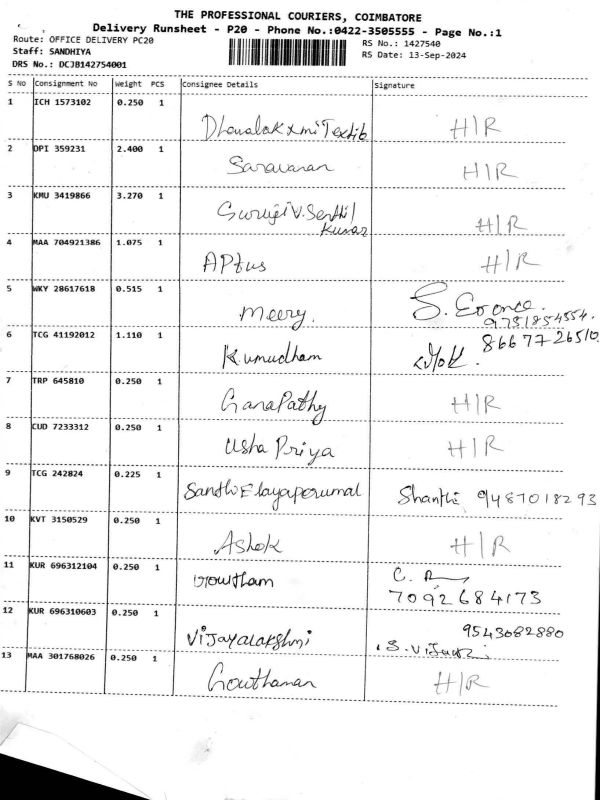 THE PROFESSIONAL COURIERS, COIMBATORE
Delivery Runsheet - P20 - Phone No.:0422-3505555 - Page No.:1
Route: OFFICE DELIVERY PC20
RS No.: 1427540
Staff: SANDHIYA
RS Date: 13-Sep-2024
DRS No.: DCJB142754001
S No Consignment No Weight PCS Consignee Details Signature
1 ICH 1573102 0.250 1
Dhanalakxmi Textib H/R
2 DPI 359231 2.400 1
Saravanan H/R
3 KMU 3419866 3.270 1
V. Senthil
Kumar H/R
4 MAA 704921386 1.075 1
APtus H/R
5 WKY 28617618 0.515 1
Meery. S.
9751854554.
6 TCG 41192012 1.110 1
8667726510
Kumudham
7 TRP 645810 0.250 1
GanaPathy H/R
8 CUD 7233312 0.250 1
Usha Priya H/R
9 TCG 242824 0.225 1
Santhi Elayaperumal Shanthi 9487018293
10 KVT 3150529 0.250 1
Ashok H/R
11 KUR 696312104 0.250 1
Gowtham C. R
7092684173
12 KUR 696310603 0.250 1
9543082880
Vijayalakshmi
13 MAA 301768026 0.250 1
Gouthaman H/R